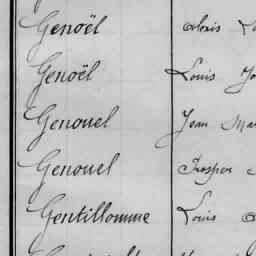 Genoël Alexis
Genoël Louis
Genouel Jean
Genouel Prosper
Gentillomme Louis